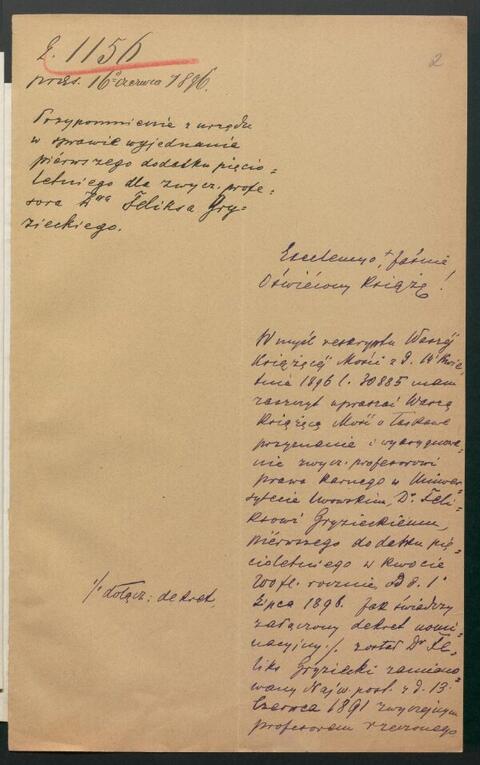 L. 1156
2
präs. 16go czerwca 1896.
Przypomnienie z urzędu
w sprawie wyjednania
pierwszego dodatku pięcio=
letniego dla zwycz. profe=
sora Dra Feliksa Gry=
zieckiego.
Excelencyo, Jaśnie
Oświecony Książę!
W myśl reskryptu Waszéj
Książęcéj Mości z d. 14 Kwie=
tnia 1896 l. 30885 mam
zaszczyt upraszać Waszą
Książęcą Mość o łaskawe
przyznanie i wyasygnowa=
nie zwycz. profesorowi
prawa karnego w Uniwer=
sytecie lwowskim, Dr Feli=
ksowi Gryzieckiemu,
pierwszego dodatku pię=
cioletniego w kwocie
200 fl. rocznie od d. 1o
Lipca 1896. Jak świadczy
załączony dekret nomi=
nacyjny ·/. został Dr Fe=
liks Gryziecki zamiano=
wany Najw. post. z d. 13.
Czerwca 1891 zwyczajnym
profesorem rzeczonego
·/. dołącz: dekret